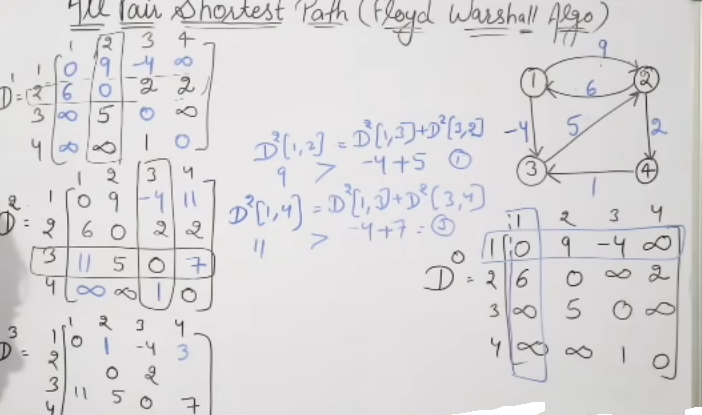 All Pair Shortest Path (Floyd Warshall Algo)
1 2 3 4
D¹ = 1 0 9 -4 ∞
2 6 0 2 2
3 ∞ 5 0 ∞
4 ∞ ∞ 1 0
1 2 3 4
D² = 1 0 9 -4 11
2 6 0 2 2
3 11 5 0 7
4 ∞ ∞ 1 0
1 2 3 4
D³ = 1 0 1 -4 3
2 0 2
3 11 5 0 7
4
D²[1,2] = D²[1,3]+D²[3,2]
9 > -4+5 1
D²[1,4] = D²[1,3]+D²(3,4)
11 > -4+7 = 3
9
1 2
6
-4 5 2
3 4
1
1 2 3 4
D⁰ = 1 0 9 -4 ∞
2 6 0 ∞ 2
3 ∞ 5 0 ∞
4 ∞ ∞ 1 0